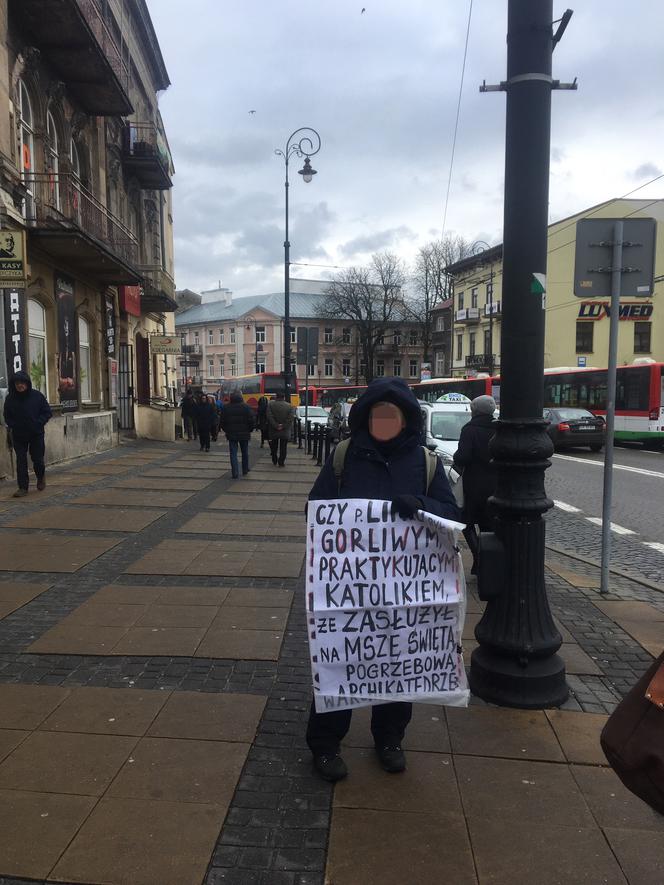 CZY P.
GORLIWYM,
PRAKTYKUJĄCYM
KATOLIKIEM,
ŻE ZASŁUŻYŁ
NA MSZĘ ŚWIĘTĄ
POGRZEBOWĄ
ARCHIKATEDRZE
LUXMED
TAXI
KASY
KSIĘGARNIA